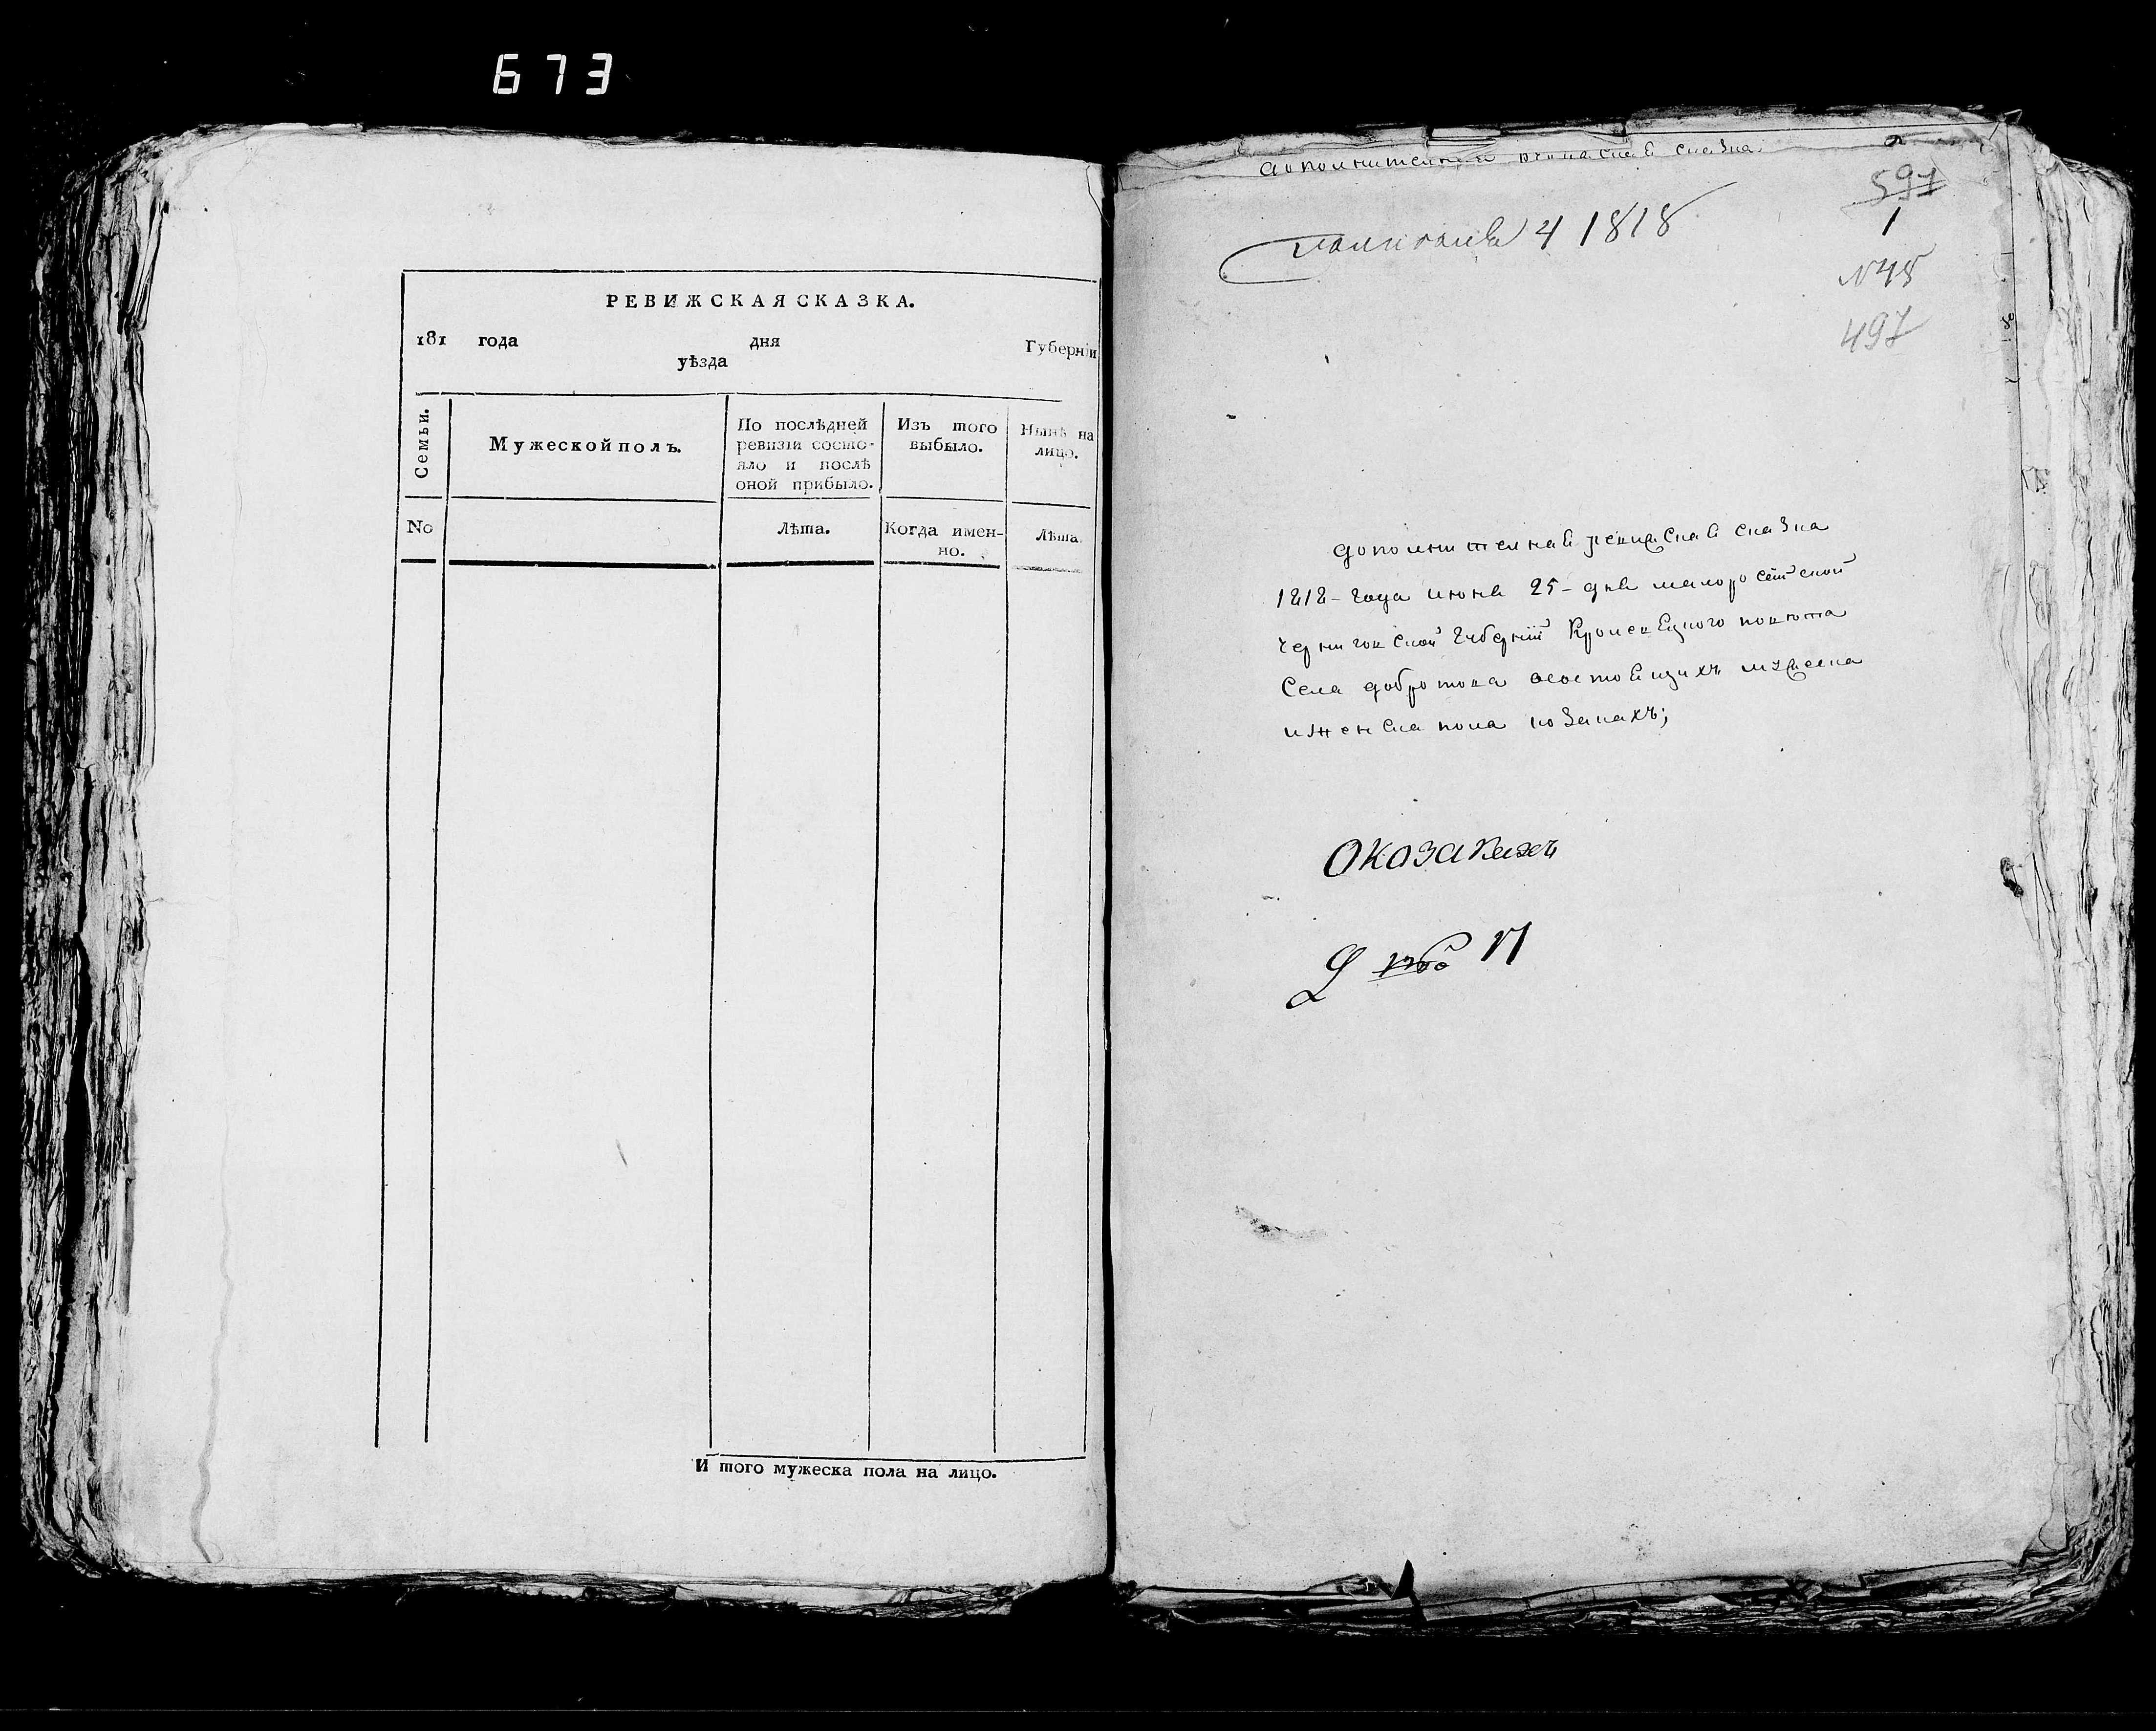 673
РЕВИЖСКАЯ СКАЗКА.
181 года дня Губерніи
уѣзда
Семьи.
Мужеской полъ.
По послѣдней
ревизіи состо-
яло и послѣ
оной прибыло.
Изъ того
выбыло.
Нынѣ на
лицо.
No
Лѣта.
Когда имен-
но.
Лѣта.
И того мужеска пола на лицо.
дополнителная сказка
4 1818
597
1
N45
497
дополнителная ревиская сказка
1818-года июня 25-дня малоросѣйской
черниговской губерніи Кролевецкого повѣта
села добротова осостоящихъ мужеска
иженска пола козакахъ;
Оказакахъ